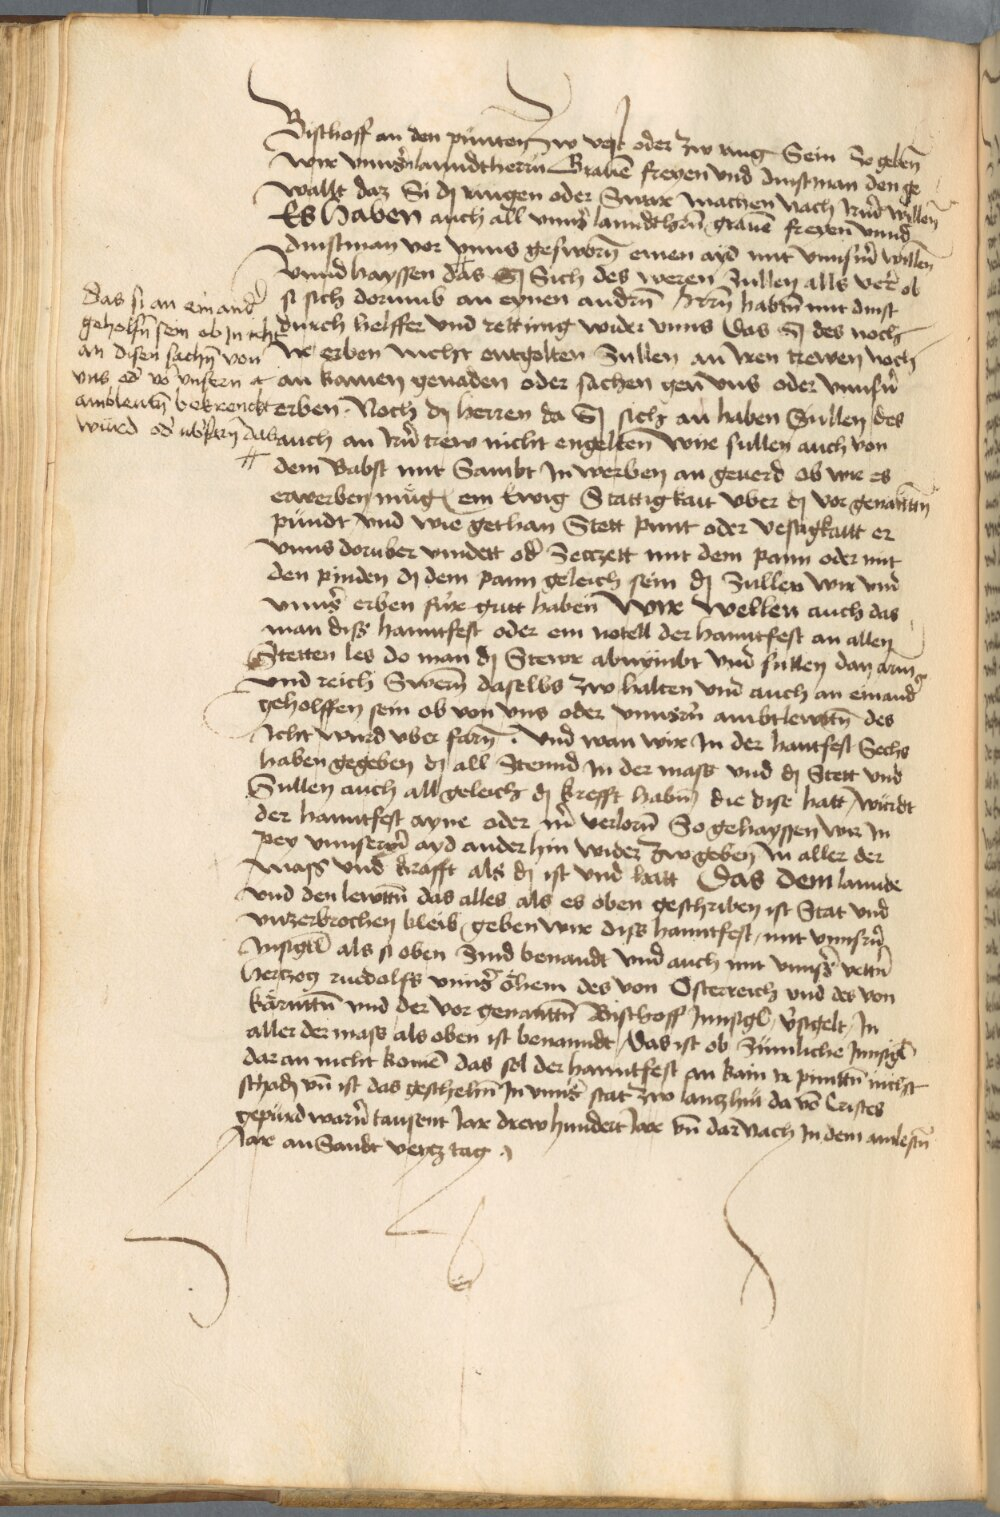 Bischoff an den pünten zw vest oder zw ring Sein So geben
wir vnnsern lanndtherrn Grauen freyen vnd dinstman den ge
wallt daz Si dy ringen oder Swär machen nach irm willen
Es Haben auch all vnnser lanndthern grauen freyen vnnd
dinstman vor vnns gesworn einen ayd mit vnnserm willen
Vnnd hayssen das Sy Sich des weren Züllen alls verr ob
si sich dorumb an eynen andern herrn habtn mit dinst
durch helffer vnd rettung wider vnns Das Sy des noch
ir erben nicht entgolten Züllen an iren trewen noch
an kainen genaden oder sachen gen vns oder vnnsern
erben. Noch dy herren da Sy sich an haben Sullen des
auch an irer trew nicht engelten Wire sullen auch von
dem Babst mit Sambt In werben an geuerd ob wir es
erwerben müg ein Ewig Stattigkait vber dy vor genanten
pündt vnd wie gethan Stett punt oder vestigkaitt er
vnns doruber vindett oder Seczett mit dem pann oder mit
den pinden dy dem pann geleich sein dy Züllen wir vnd
vnnser erben für gutt haben Wir wellen auch das
man diss hanntfest oder ein notell der hanntfest an allen
Stetten les do man dy Stewr abnimbt vnd sullen dan arm
vnd reich Swern daselbs zw halten vnd auch an einander
geholffen sein ob von vns oder vnnsern ambtlewten des
Icht wurd vber farn. Vnd wan wir In der hantfest Sechs
haben gegeben dy all Stennd In der mass vnd dy Stett vnd
Sullen auch all geleich dy krefft haben die dise hatt, würdt
der hanntfest ayne oder mer verlorn So gehayssen wir In
pey vnnserm ayd ander hin wider zw geben In aller der
Mass vnd krafft als dy ist vnd hatt Das dem lannde
vnd den lewttn das alles als es oben geschriben ist Stat vnd
vnzerbrochen bleib, geben wir diss hanntfest, mit vnnserm
Insigel als si oben Sind benandt vnd auch mit vnnsers vettern
Hertzog rudolfs vnnser öhem des von Österreich vnd des von
Kärnttn vnd der vor genanttn Bischoff Innsigl, versigelt, In
aller der mass als oben ist benanndt, Das ist ob Sümliche Innsigl
dar an nicht komen das sol der hanntfest an kain ir pünttn nicht
schaden vnd ist das geschehen In vnnser stat zw lantzhüt da von Cristes
gepürd warn tausent Jar drew hundert Jar vnd dar nach In dem ainlesten
Jar an Sandt veycz tag.
Das si an ein ander
geholfen sein ob In icht
an disen sachen von
vns oder von vnsern
ambtleutn bekrenckt
würd oder vberfarn das